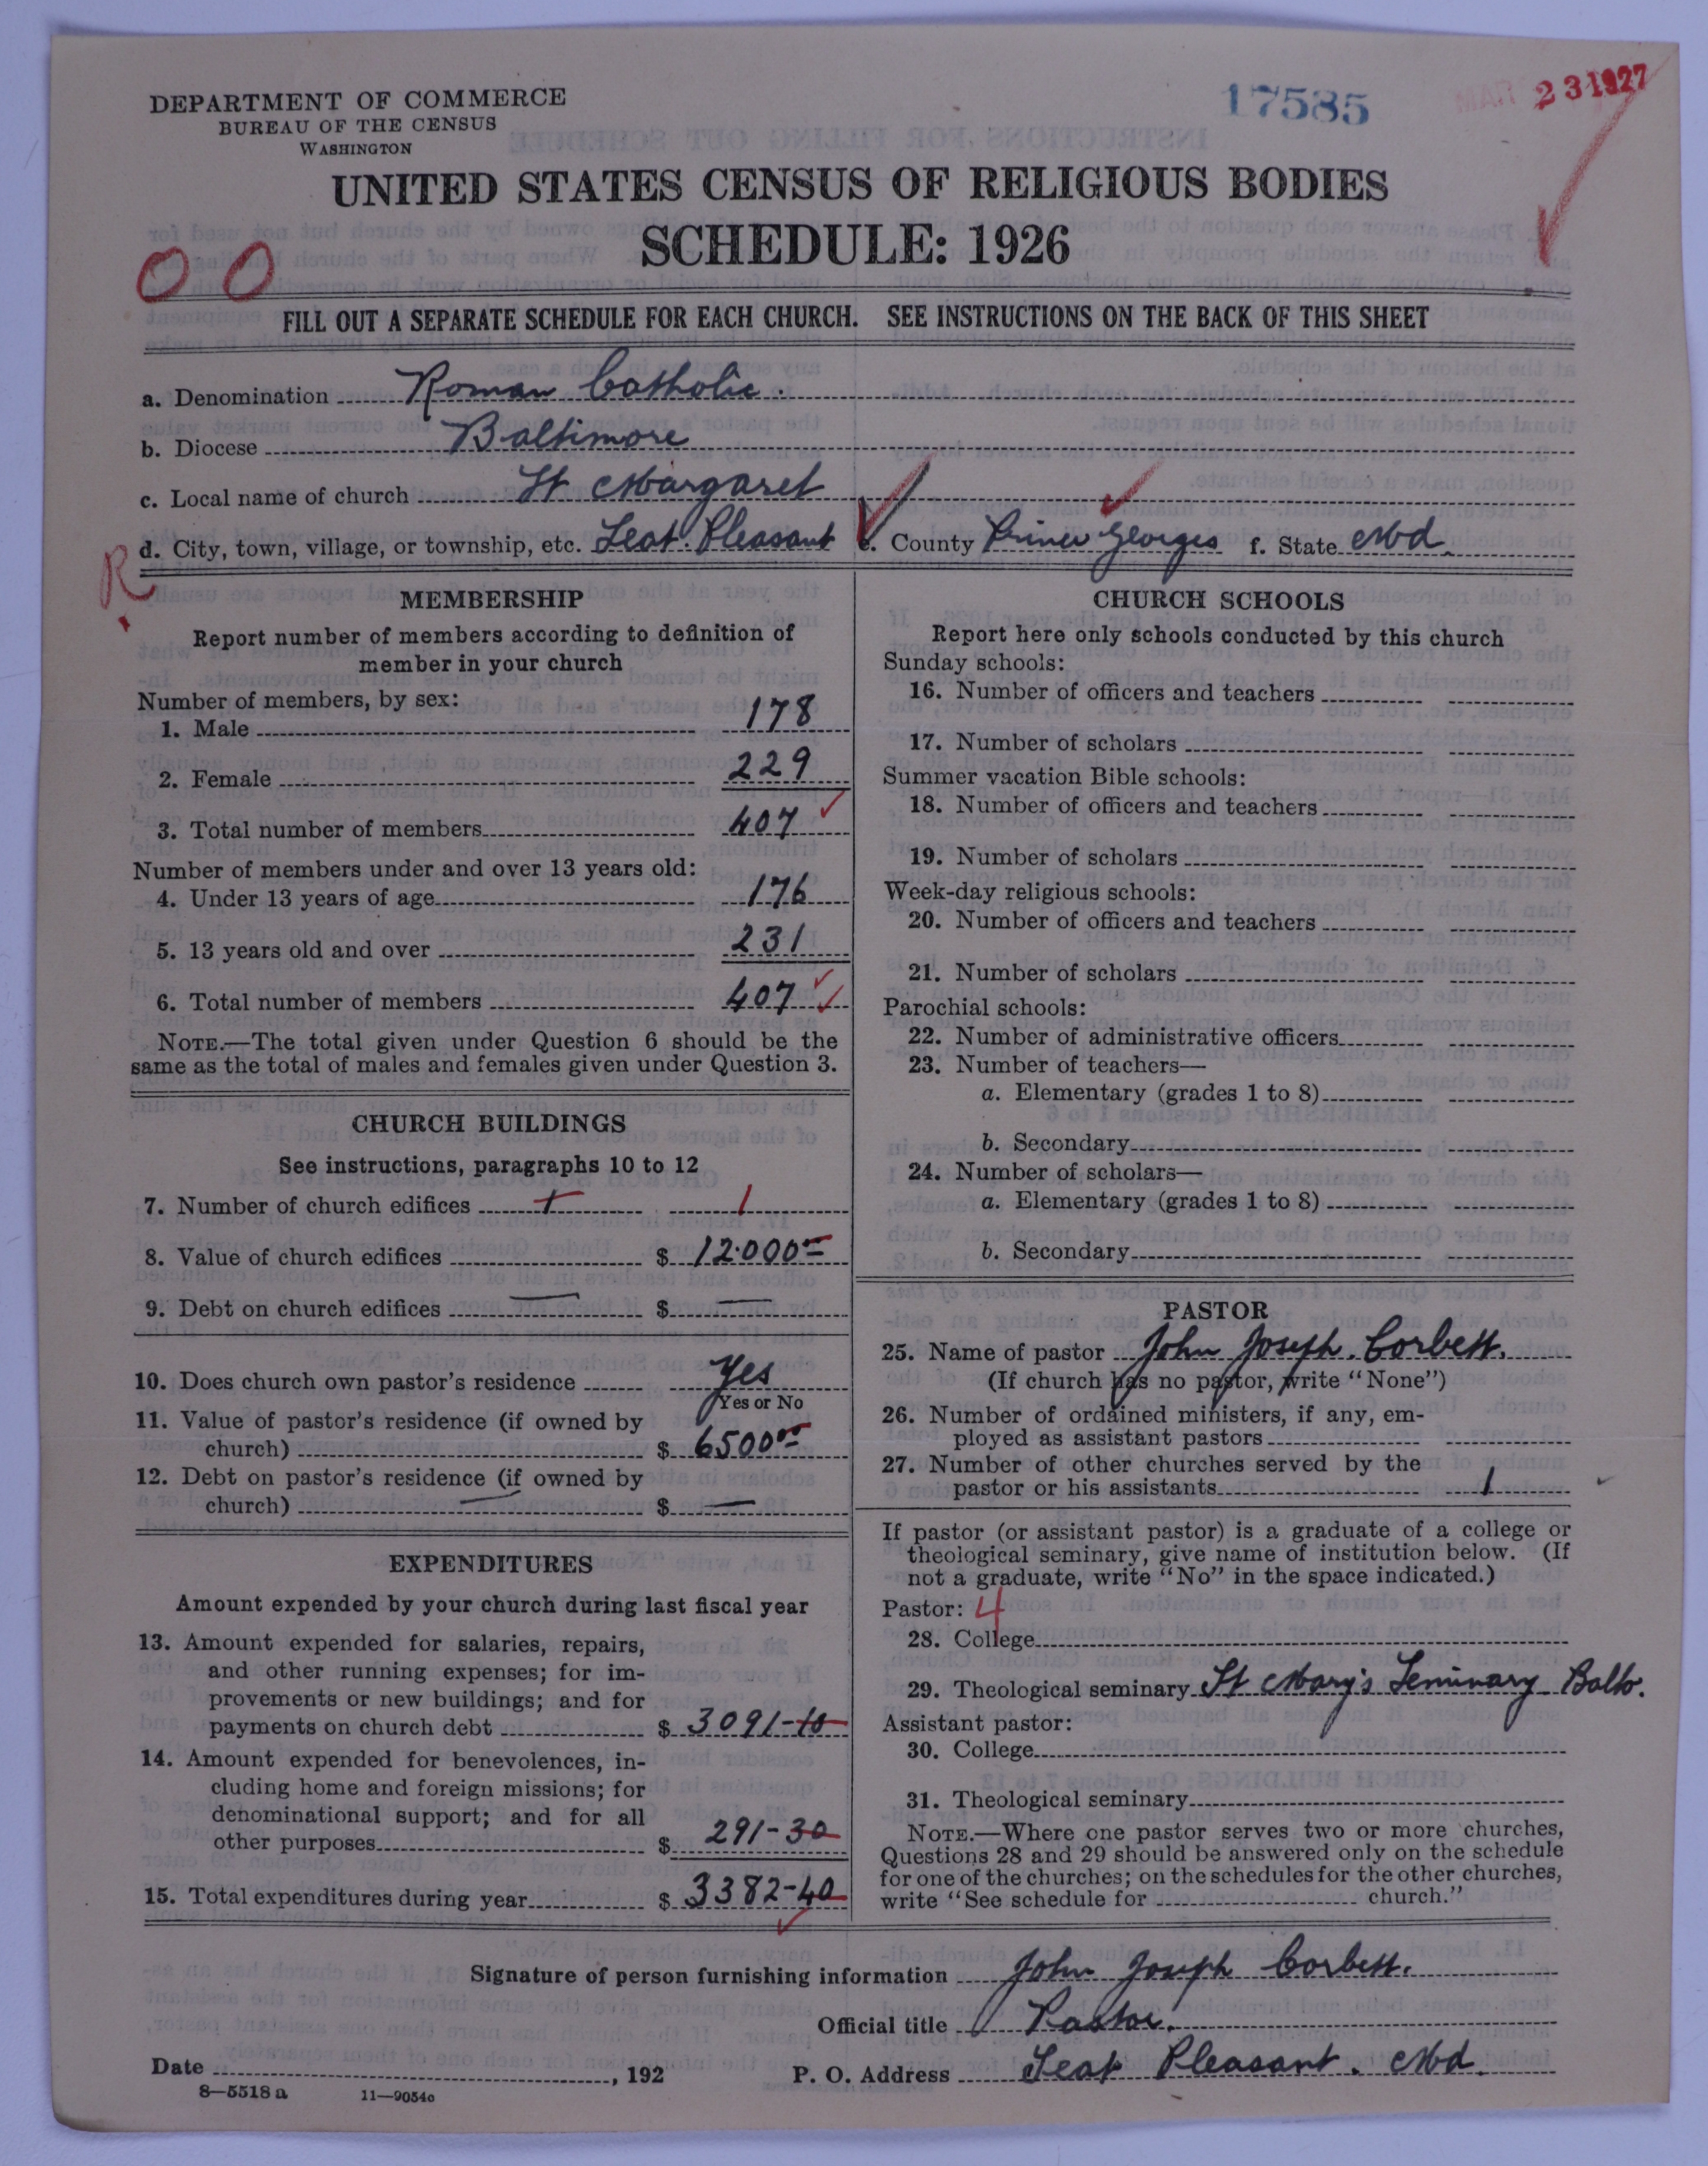 DEPARTMENT OF COMMERCE
BUREAU OF THE CENSUS
WASHINGTON
17585
MAR 23 1927
UNITED STATES CENSUS OF RELIGIOUS BODIES
SCHEDULE: 1926
00
FILL OUT A SEPARATE SCHEDULE FOR EACH CHURCH. SEE INSTRUCTIONS ON THE BACK OF THIS SHEET
a. Denomination Roman Catholic.
b. Diocese Baltimore
c. Local name of church St Margaret
d. City, town, village, or township, etc. Seat Pleasant e. County Prince Georges f. State Md.
R
MEMBERSHIP
Report number of members according to definition of
member in your church
Number of members, by sex:
1. Male 178
2. Female 229
3. Total number of members 407
Number of members under and over 13 years old:
4. Under 13 years of age 176
5. 13 years old and over 231
6. Total number of members 407
NOTE.—The total given under Question 6 should be the
same as the total of males and females given under Question 3.
CHURCH BUILDINGS
See instructions, paragraphs 10 to 12
7. Number of church edifices 1 1
8. Value of church edifices $ 12.000 00
9. Debt on church edifices — $ —
10. Does church own pastor's residence Yes
Yes or No
11. Value of pastor's residence (if owned by
church) $ 6500 00
12. Debt on pastor's residence (if owned by
church) — $ —
EXPENDITURES
Amount expended by your church during last fiscal year
13. Amount expended for salaries, repairs,
and other running expenses; for im-
provements or new buildings; and for
payments on church debt $ 3091-10
14. Amount expended for benevolences, in-
cluding home and foreign missions; for
denominational support; and for all
other purposes $ 291-30
15. Total expenditures during year $ 3382-40
CHURCH SCHOOLS
Report here only schools conducted by this church
Sunday schools:
16. Number of officers and teachers
17. Number of scholars
Summer vacation Bible schools:
18. Number of officers and teachers
19. Number of scholars
Week-day religious schools:
20. Number of officers and teachers
21. Number of scholars
Parochial schools:
22. Number of administrative officers
23. Number of teachers—
a. Elementary (grades 1 to 8)
b. Secondary
24. Number of scholars—
a. Elementary (grades 1 to 8)
b. Secondary
PASTOR
25. Name of pastor John Joseph. Corbett.
(If church has no pastor, write "None")
26. Number of ordained ministers, if any, em-
ployed as assistant pastors
27. Number of other churches served by the
pastor or his assistants 1
If pastor (or assistant pastor) is a graduate of a college or
theological seminary, give name of institution below. (If
not a graduate, write "No" in the space indicated.)
Pastor: 4
28. College
29. Theological seminary St Mary's Seminary Balto.
Assistant pastor:
30. College
31. Theological seminary
NOTE.—Where one pastor serves two or more churches,
Questions 28 and 29 should be answered only on the schedule
for one of the churches; on the schedules for the other churches,
write "See schedule for church."
Signature of person furnishing information John Joseph Corbett.
Official title Pastor.
Date , 192 P. O. Address Seat Pleasant. Md.
8—5518 a 11—9054c